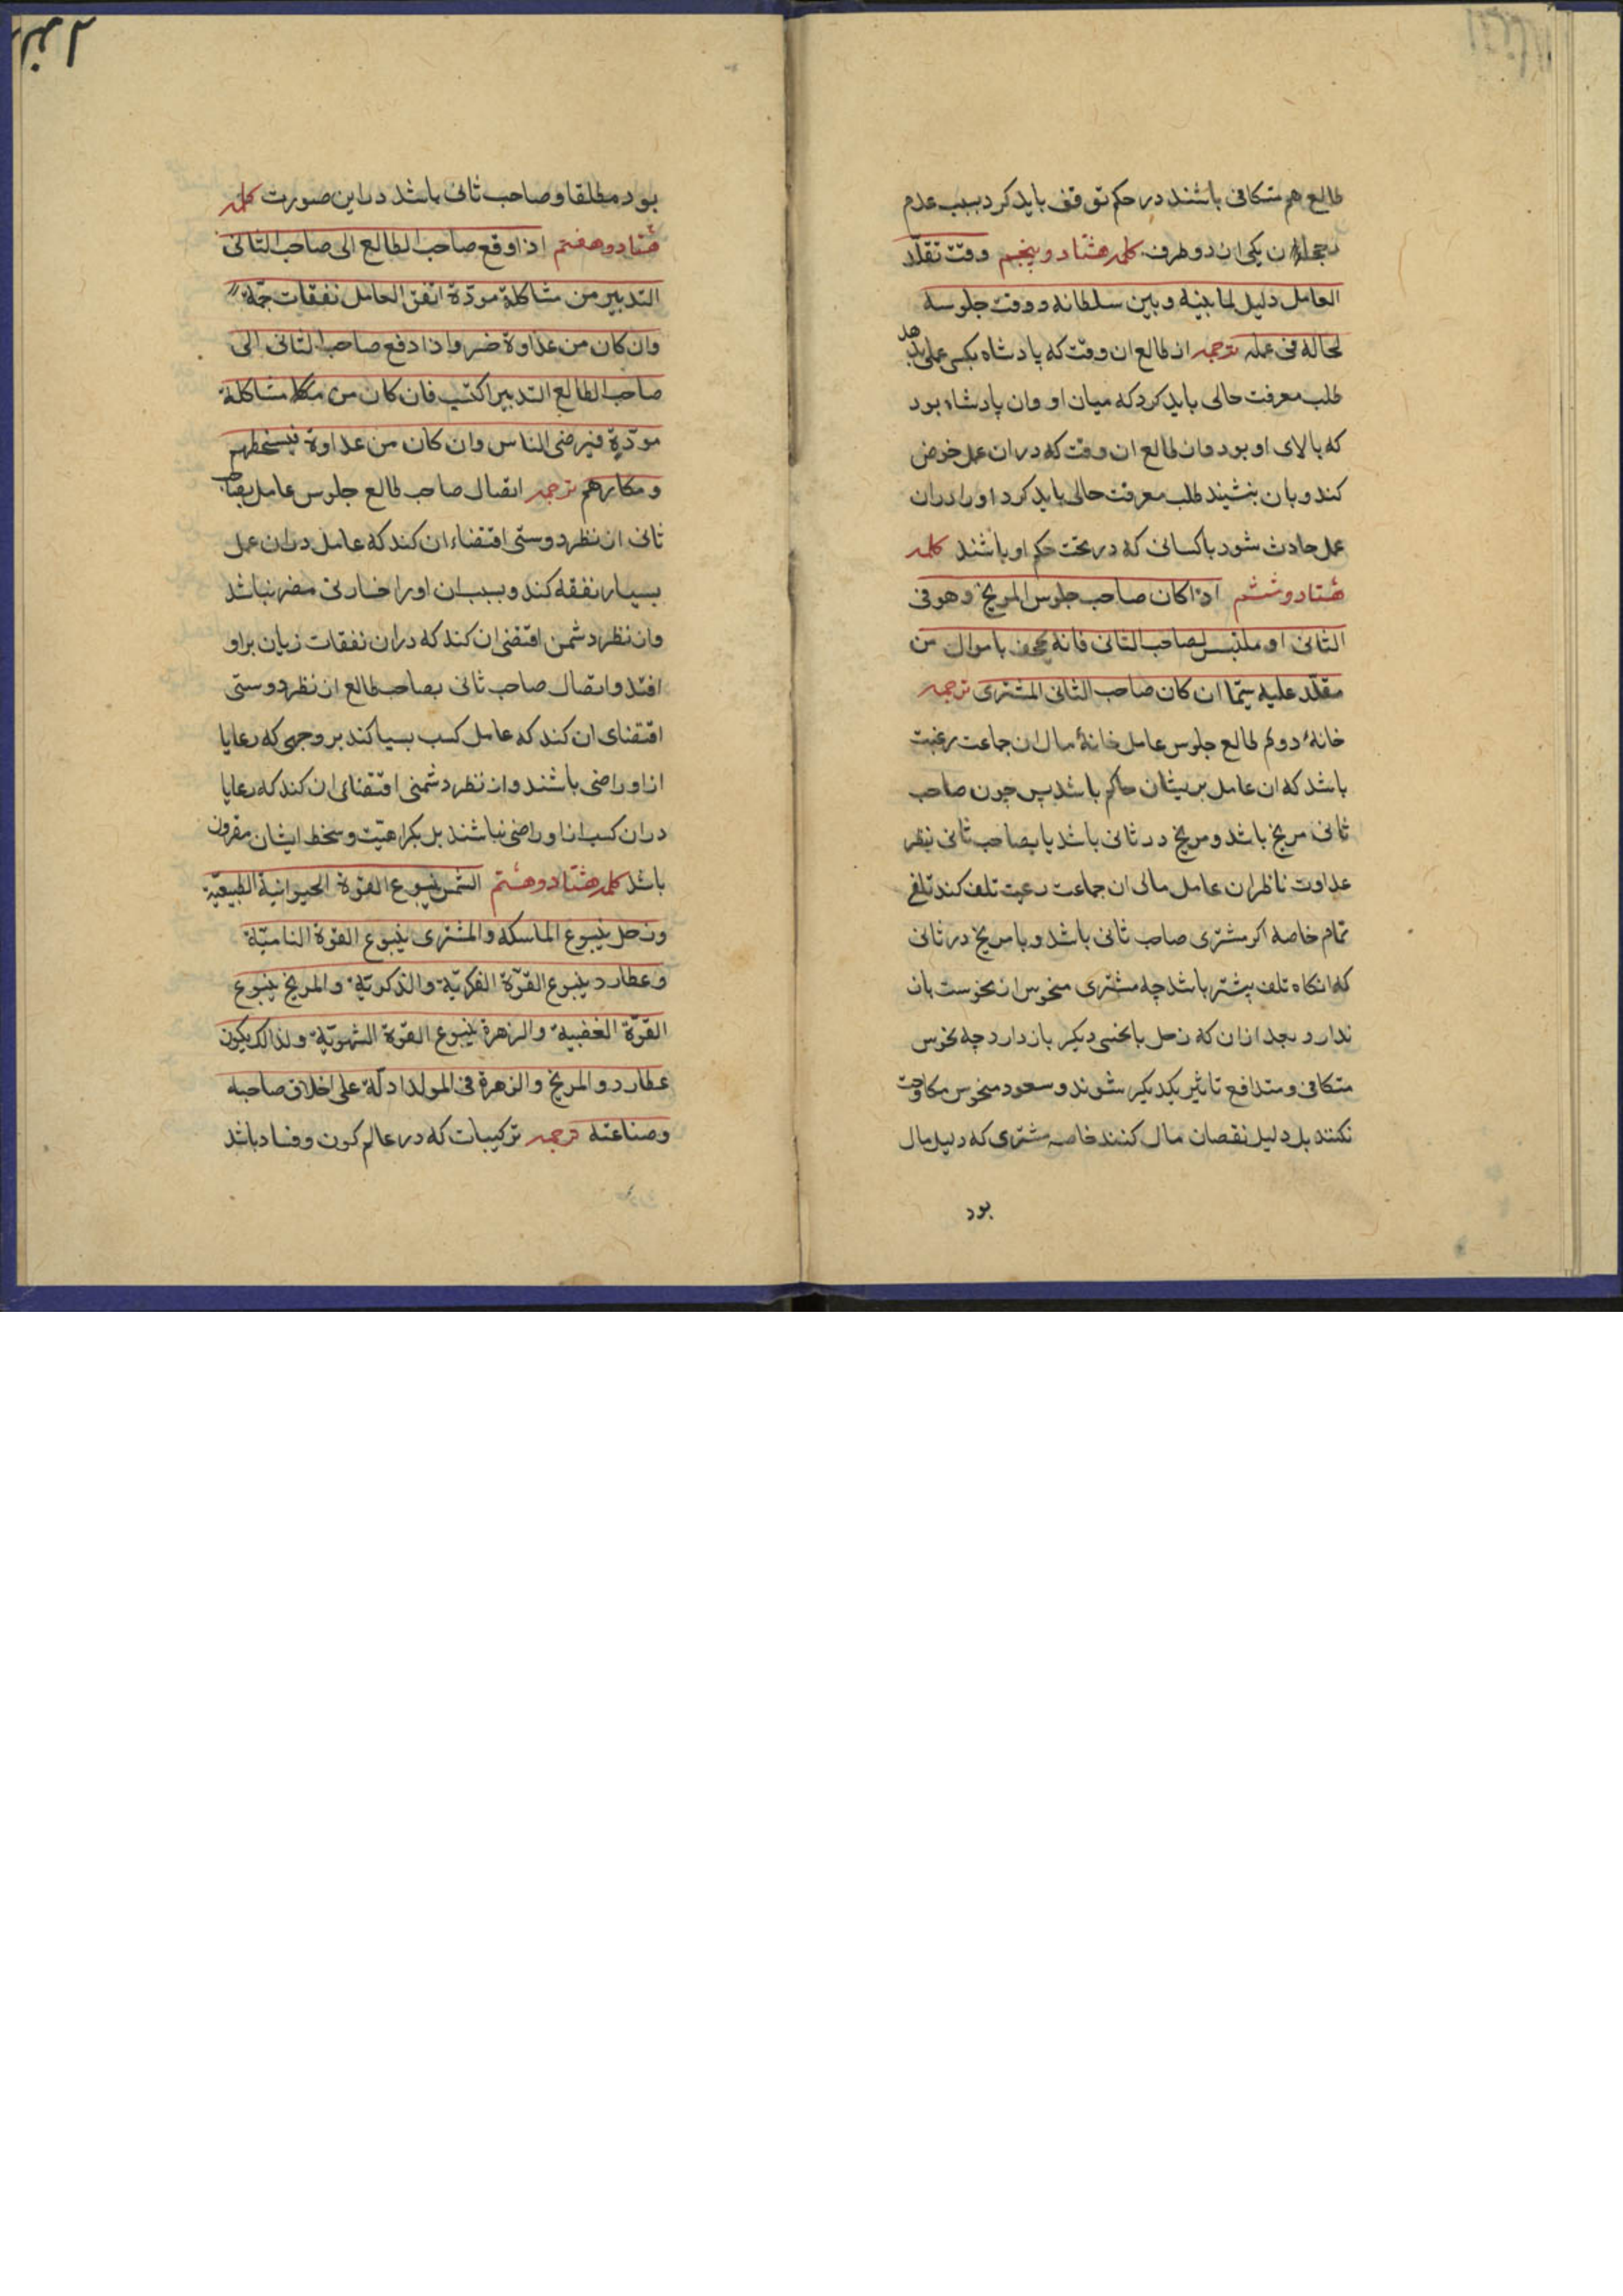 طالع هم متکافی باشند در حکم توقف باید کرد بسبب عدم
ن یکی ازن دو طرف کلمه هشتاد و پنجم وقت تقلّد
العامل دلیل لما بینه و بین سلطانه و وقت جلوسه
لحاله فی عمله ترجمه از طالع ان وقت که پادشاه بکسی عملی بدهد
طلب معرفت حالی باید کرد که میان او وان پادشاه بود
که بالای او بود وان طالع ان وقت که در ان عمل خوض
کند و بان بنشیند طلب معرفت حالی باید کرد او را در ان
عمل حادث شود باکسانی که در تحت حکم او باشند کلمه
هشتاد و ششم اذا کان صاحب جلوس المریخ وهو فی
الثانی او ملتبس لصاحب الثانی فانه یجحف باموال من
مقلّد علیه سیّما ان کان صاحب الثانی المشتری ترجمه
خانهٔ دوم طالع جلوس عامل خانهٔ مال ان جماعت رغبت
باشد که ان عامل بر یشان حاکم باشد پس چون صاحب
ثانی مریخ باشد و مریخ در ثانی باشد یا بصاحب ثانی بنظر
عداوت ناظر ان عامل مالی ان جماعت رعیت تلف کند تلفی
تمام خاصه اکر مشتری صاحب ثانی باشد و با مریخ در ثانی
که انکاه تلف بیشتر باشد چه مشتری منحوس از نحوست بان
ندارد بجد ازان که زحل بانحسی دیکر باز دارد چه نحوس
متکافی و متدافع تاثیر یکدیکر شوند و سعود منحوس مکاوحت
نکنند بل دلیل نقصان مال کنند خاصه مشتری که دلیل مال
بود
بود مطلقا و صاحب ثانی باشد در این صورت کلمه
هشتاد و هفتم اذا وقع صاحب الطالع الی صاحب الثانی
التدبیر من مشاکلة مودّة انفق العامل نفقات جمّة
وان کان من عداوة ضر واذا دفع صاحب الثانی الی
صاحب الطالع التدبیر اکتسب فان کان من مشاکلة
مودّة فیرضی الناس وان کان من عداوة فیسخطهم
و مکارهم ترجمه اتصال صاحب طالع جلوس عامل بصاحب
ثانی از نظر دوستی اقتضاء ان کند که عامل در ان عمل
بسیار نفقه کند و بسبب ان او را خسارتی مضر نباشد
وان نظر دشمن اقتضی ان کند که در ان نفقات زیان بر او
افتد و اتصال صاحب ثانی بصاحب طالع از نظر دوستی
اقتضای ان کند که عامل کسب بسیا کند بر وجهی که رعایا
از او راضی باشند و از نظر دشمنی اقتضای ان کند که رعایا
در ان کسب از او راضی نباشند بل بکراهیّت و سخط ایشان مقرون
باشد کلمه هشتاد و هشتم الشمس ینبوع القوة الحیوانیة الطبیعیّة
وزحل ینبوع الماسکه والمشتری ینبوع القوّة النامیّة
وعطارد ینبوع القوّة الفکریّة والذکریّة والمریخ ینبوع
القوّة الغضبیة والزهرة ینبوع القوّة الشهویّة ولذالک یکون
عطارد و المریخ والزهرة فی المولد ادلّة علی اخلاق صاحبه
وصناعته ترجمه ترکیبات که در عالم کون و فساد باشد